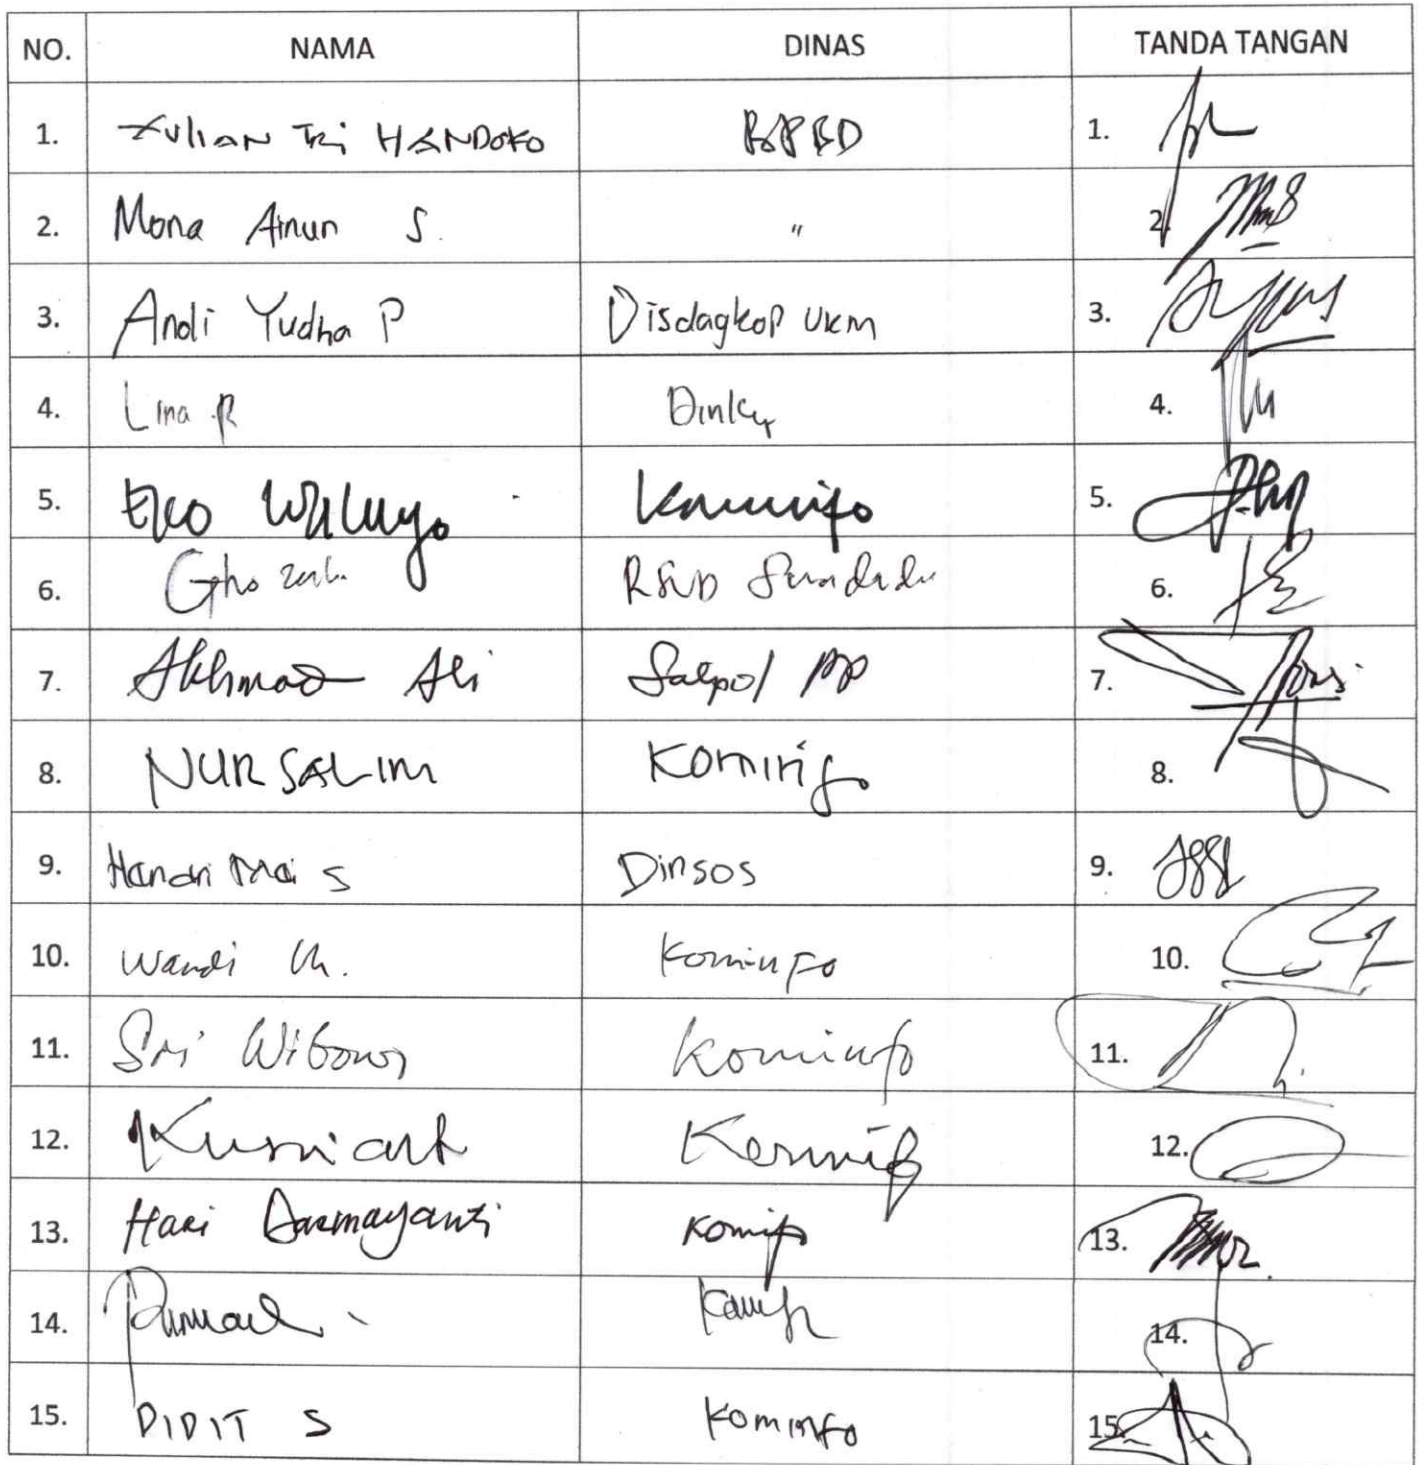 NO. NAMA DINAS TANDA TANGAN
1. Yulian Tri HANDOKO BPBD 1.
2. Mona Ainun S. " 2.
3. Andi Yudha P Disdagkop UKM 3.
4. Lina R 4.
5. Eko Waluyo Kominfo 5.
6. RSUD 6.
7. Akhmad Ali Satpol PP 7.
8. NUR SALIM Kominfo 8.
9. S Dinsos 9.
10. Wandi Kominfo 10.
11. Sri Wibowo Kominfo 11.
12. Kominfo 12.
13. Hari Darmayanti Kominfo 13.
14. 14.
15. DIDIT S Kominfo 15.